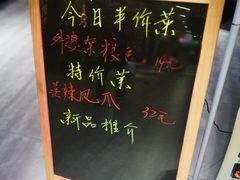 今日半价菜
外婆菜粮色 14元
特价菜
芷辣凤爪
32元
新品推介